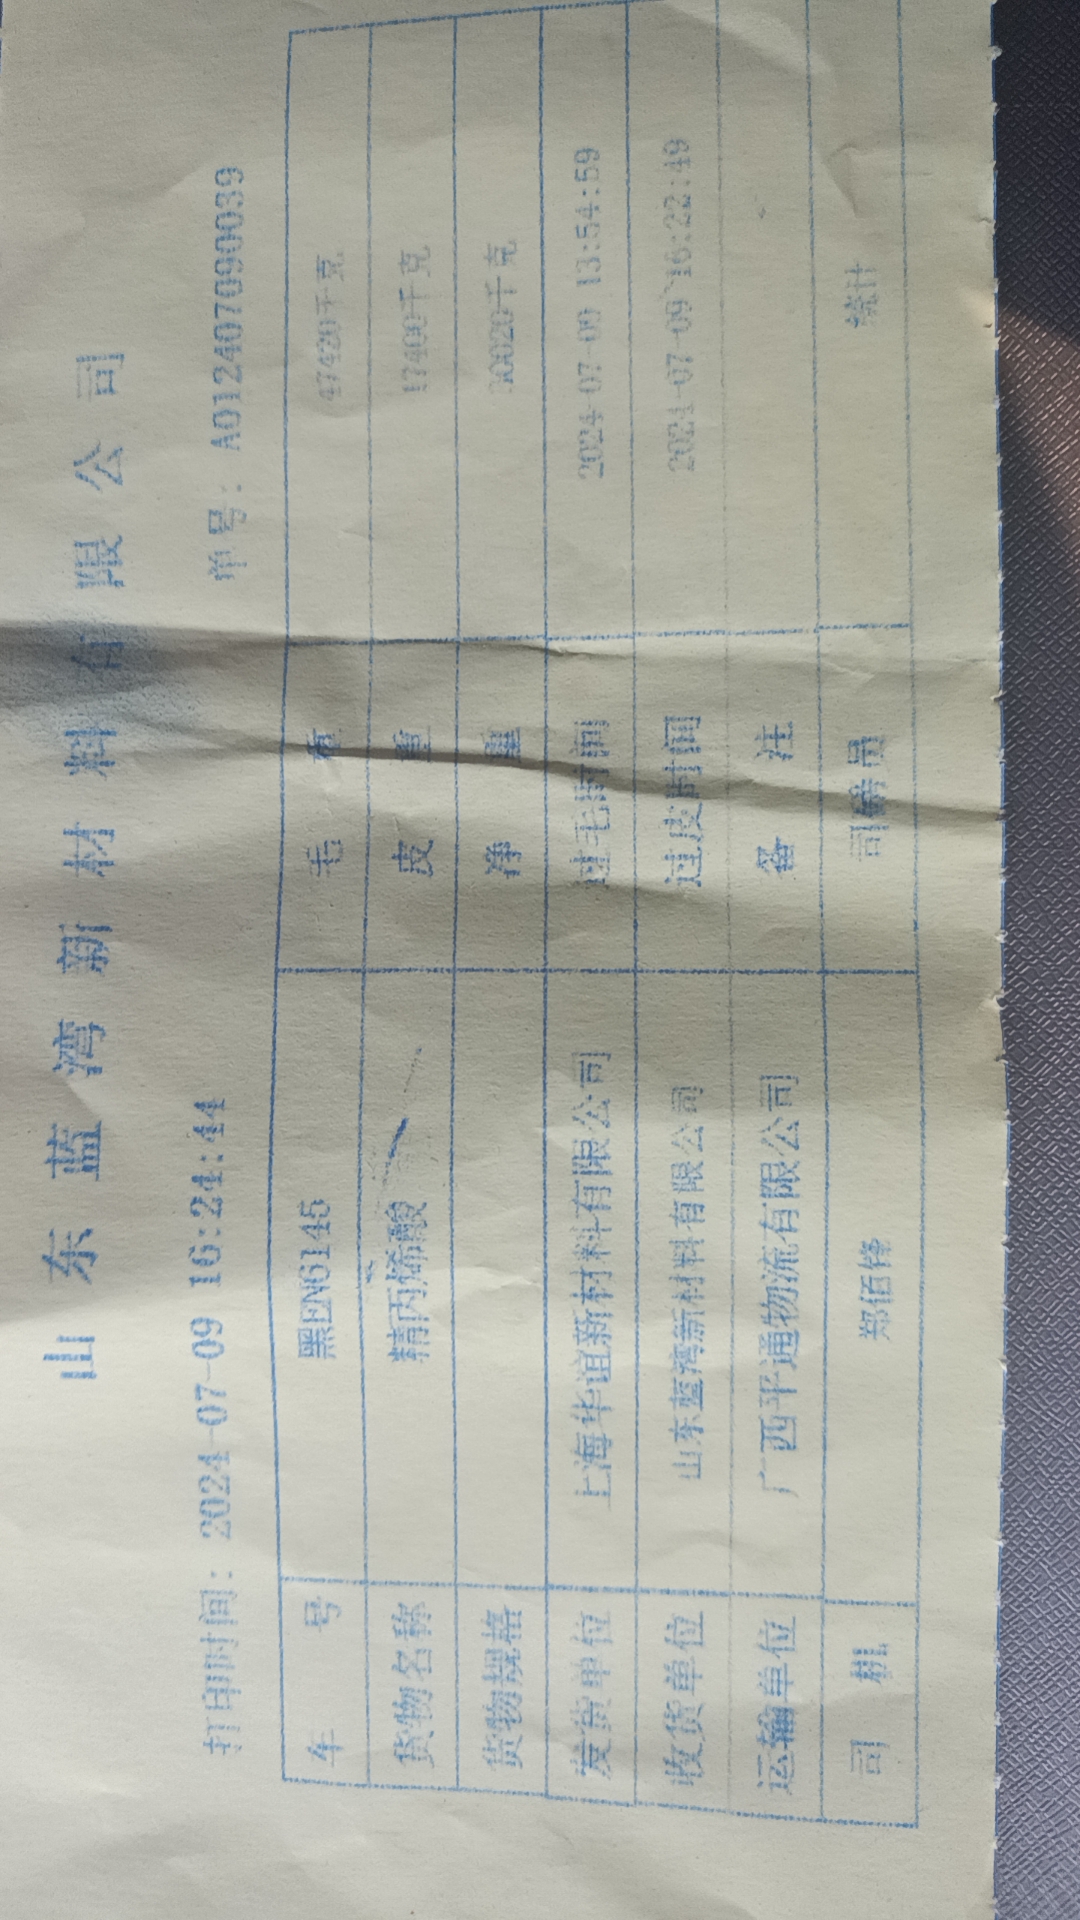 山东蓝湾新材料有限公司
打印时间: 2024-07-09 16:24:44 单号: A012407090039
车号 黑EN6145 毛重 47420千克
货物名称 精丙烯酸 皮重 17400千克
货物规格 净重 30020千克
发货单位 上海华谊新材料有限公司 过毛时间 2024-07-09 13:54:59
收货单位 山东蓝湾新材料有限公司 过皮时间 2024-07-09 16:22:49
运输单位 广西平通物流有限公司 备注
司机 郑佰锋 司磅员 统计